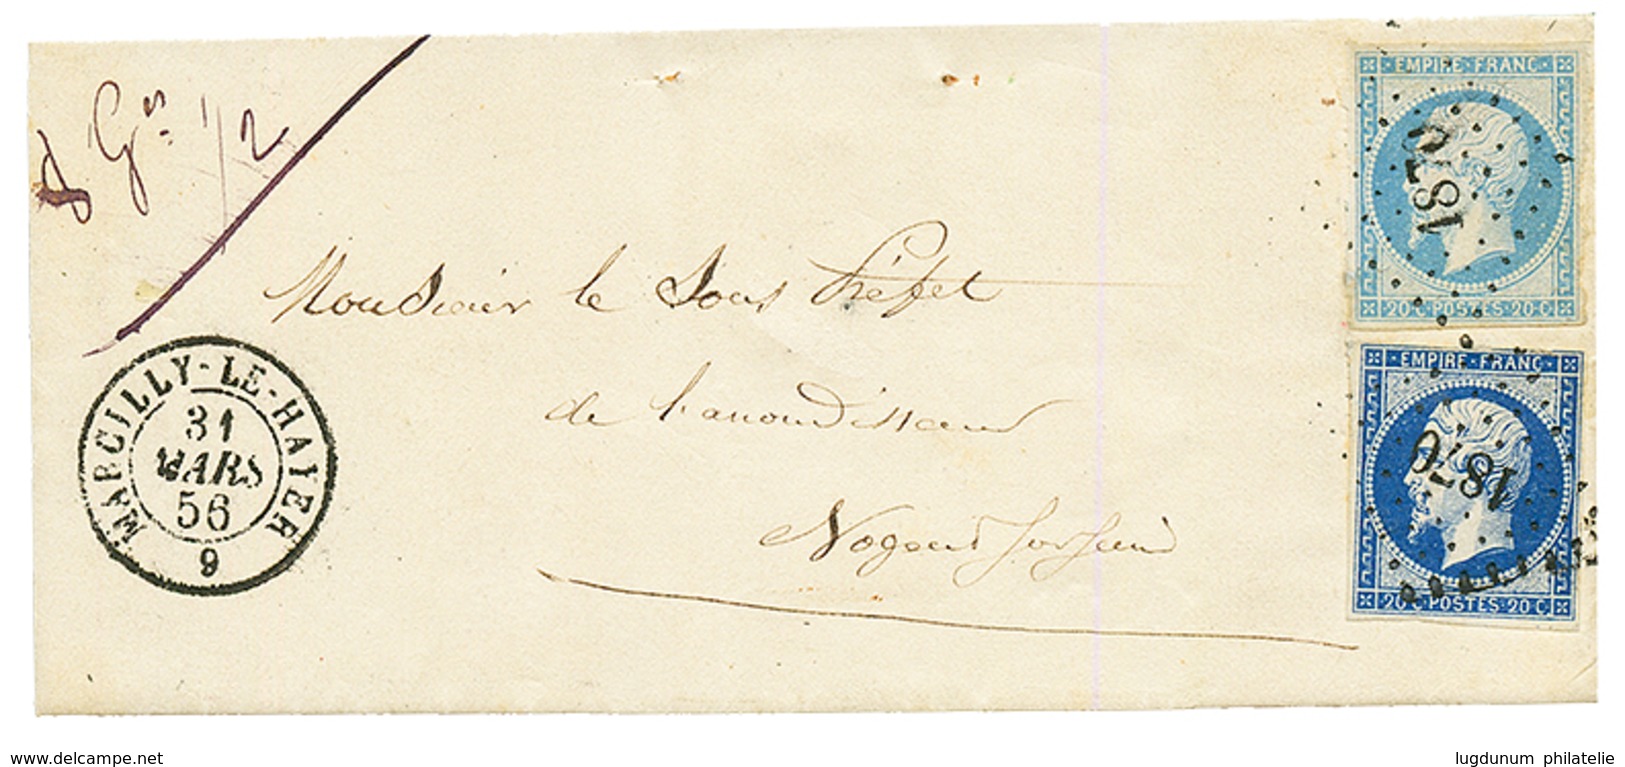 8 Ges 1/2
EMPIRE·FRANC·
1872
20·C·POSTES·20·C·
MARCILLY-LE-HAYER
31
MARS
56
9
Monsieur le Sous Préfet
de l'arrondissement
Nogent sur Seine
EMPIRE·FRANC·
1870
20·C·POSTES·20·C·
www.delcampe.net
lugdunum philatelie